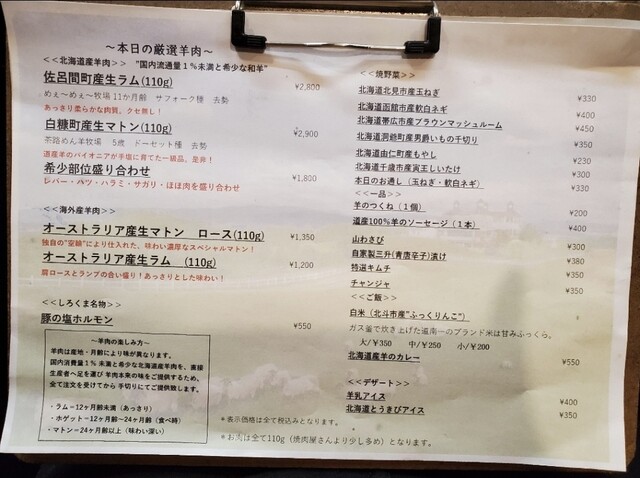 ～本日の厳選羊肉～
<<北海道産羊肉>> "国内流通量１％未満と希少な和羊"
佐呂間町産生ラム(110g) ¥2,800
めぇ～めぇ～牧場 11か月齢 サフォーク種 去勢
あっさり柔らかな肉質。クセ無し！
白糠町産生マトン(110g) ¥2,900
茶路めん羊牧場 5歳 ドーセット種 去勢
道産羊のパイオニアが手塩に育てた一級品。是非！
希少部位盛り合わせ ¥1,800
レバー・ハツ・ハラミ・サガリ・ほほ肉を盛り合わせ
<<海外産羊肉>>
オーストラリア産生マトン ロース(110g) ¥1,350
独自の"空輸"により仕入れた、味わい濃厚なスペシャルマトン！
オーストラリア産生ラム (110g) ¥1,200
肩ロースとランプの合い盛り！あっさりとした味わい！
<<しろくま名物>>
豚の塩ホルモン ¥550
～羊肉の楽しみ方～
羊肉は産地・月齢により味が異なります。
国内消費量１％未満と希少な北海道産羊肉を、直接
生産者へ足を運び 羊肉本来の味をご提供するため、
全て注文を受けてから 手切りにてご提供致します。
・ラム＝12ヶ月齢未満（あっさり）
・ホゲット＝12ヶ月齢～24ヶ月齢（食べ時）
・マトン＝24ヶ月齢以上（味わい深い）
<<焼野菜>>
北海道北見市産玉ねぎ ¥330
北海道函館市産軟白ネギ ¥400
北海道帯広市産ブラウンマッシュルーム ¥450
北海道洞爺町産男爵いもの千切り ¥350
北海道由仁町産もやし ¥230
北海道千歳市産寅王しいたけ ¥300
本日のお通し（玉ねぎ・軟白ネギ） ¥330
<<一品>>
羊のつくね（１個） ¥200
道産100％羊のソーセージ（１本） ¥400
山わさび ¥300
自家製三升(青唐辛子)漬け ¥380
特選キムチ ¥350
チャンジャ ¥350
<<ご飯>>
白米（北斗市産"ふっくりんこ"）
ガス釜で炊き上げた道南一のブランド米は甘みふっくら。
大/¥350 中/¥250 小/¥200
北海道産羊のカレー ¥550
<<デザート>>
羊乳アイス ¥400
北海道とうきびアイス ¥350
＊表示価格は全て税込みとなります。
＊お肉は全て110g（焼肉屋さんより少し多め）となります。